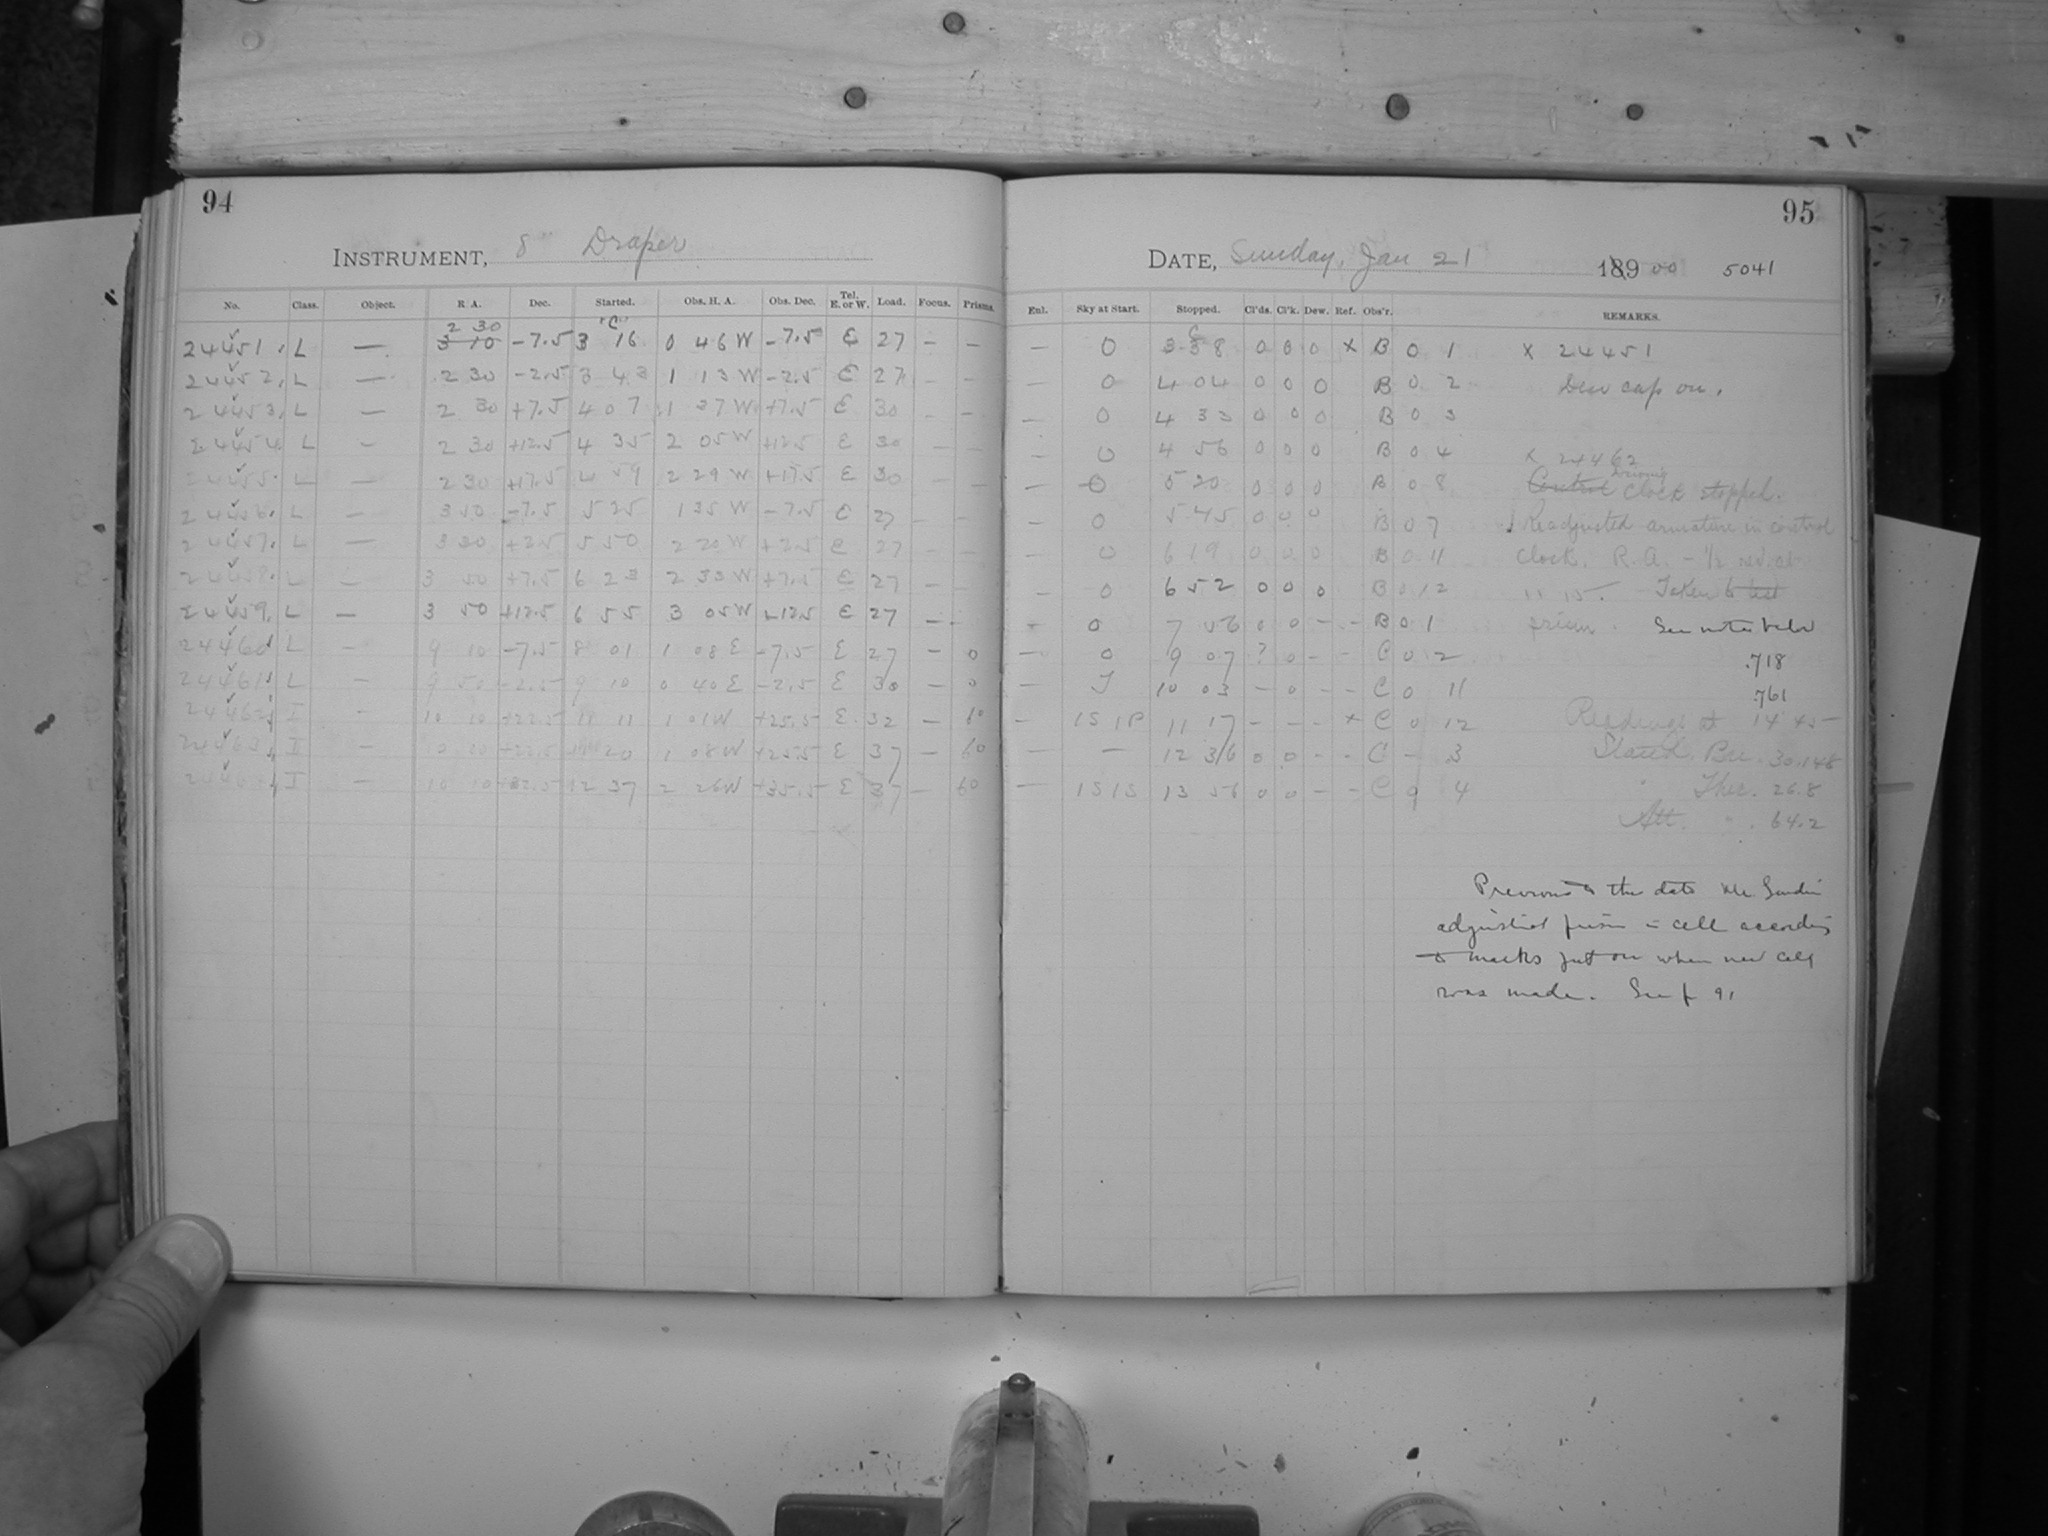 94
INSTRUMENT, 8" Draper
No. Class. Object. R A. Dec. Started. Obs. H. A. Obs. Dec. Tel. E. or W. Load. Focus. Prisms.
2 30
24451. L — 3 10 -7.5 3 16 0 46 W -7.5 E 27 - -
24452. L — 2 30 -2.5 3 43 1 13 W -2.5 E 27 - -
24453. L — 2 30 +7.5 4 07 1 37 W +7.5 E 30 - -
24454. L — 2 30 +12.5 4 35 2 05 W +12.5 E 30 - -
24455. L — 2 30 +17.5 4 59 2 29 W +17.5 E 30 - -
24456. L — 3 50 -7.5 5 25 1 35 W -7.5 E 27 - -
24457. L — +2.5 5 50 2 20 W +2.5 E 27 - -
24458. L — 3 50 +7.5 6 23 2 33 W +7.5 E 27 - -
24459. L — 3 50 +12.5 6 55 3 05 W +12.5 E 27 - -
24460 L — 9 10 -7.5 8 01 1 08 E -7.5 E 27 - 0
24461 L — 9 50 -2.5 9 10 0 40 E -2.5 E 30 - 0
24462 I — 10 10 11 11 1 01 W +25.5 E 32 - 60
24463 I — 10 10 20 1 08 W +25.5 E 37 - 60
I — 10 10 12 37 2 26 W +35.5 E 37 - 60
95
DATE, Sunday, Jan 21 189 00 5041
Enl. Sky at Start. Stopped. Cl'ds. Cl'k. Dew. Ref. Obs'r. REMARKS.
— 0 3 38 0 0 0 X B 0 1 X 24451
— 0 4 04 0 0 0 B 0 2 Dew cap on.
— 0 4 33 0 0 0 B 0 3
— 0 4 56 0 0 0 B 0 4 X 24462
— 0 5 20 0 0 0 B 0 8 Control Driving clock stopped.
— 0 5 45 0 0 0 B 0 7 Readjusted armature in control
— 0 6 19 0 0 0 B 0 11 clock. R.A. - 1/2 rev. at
— 0 6 52 0 0 0 B 0 12 11 15. Taken to test
- 0 7 56 0 0 - - B 0 1 prism. See notes below
— 0 9 07 ? 0 - - C 0 2 .718
— 10 03 - 0 - - C 0 11 .761
— 1S 1P 11 17 - - - X C 0 12 Readings at 14 45
— — 12 36 0 0 - - C - 3 Stand. Bar. 30.148
— 1S 1S 13 56 0 0 - - C 9 4 " Ther. 26.8
Att. " . 64.2
Previous to the date Mr.
adjusted prism in cell according
to marks put on when new cell
was made. See p 91